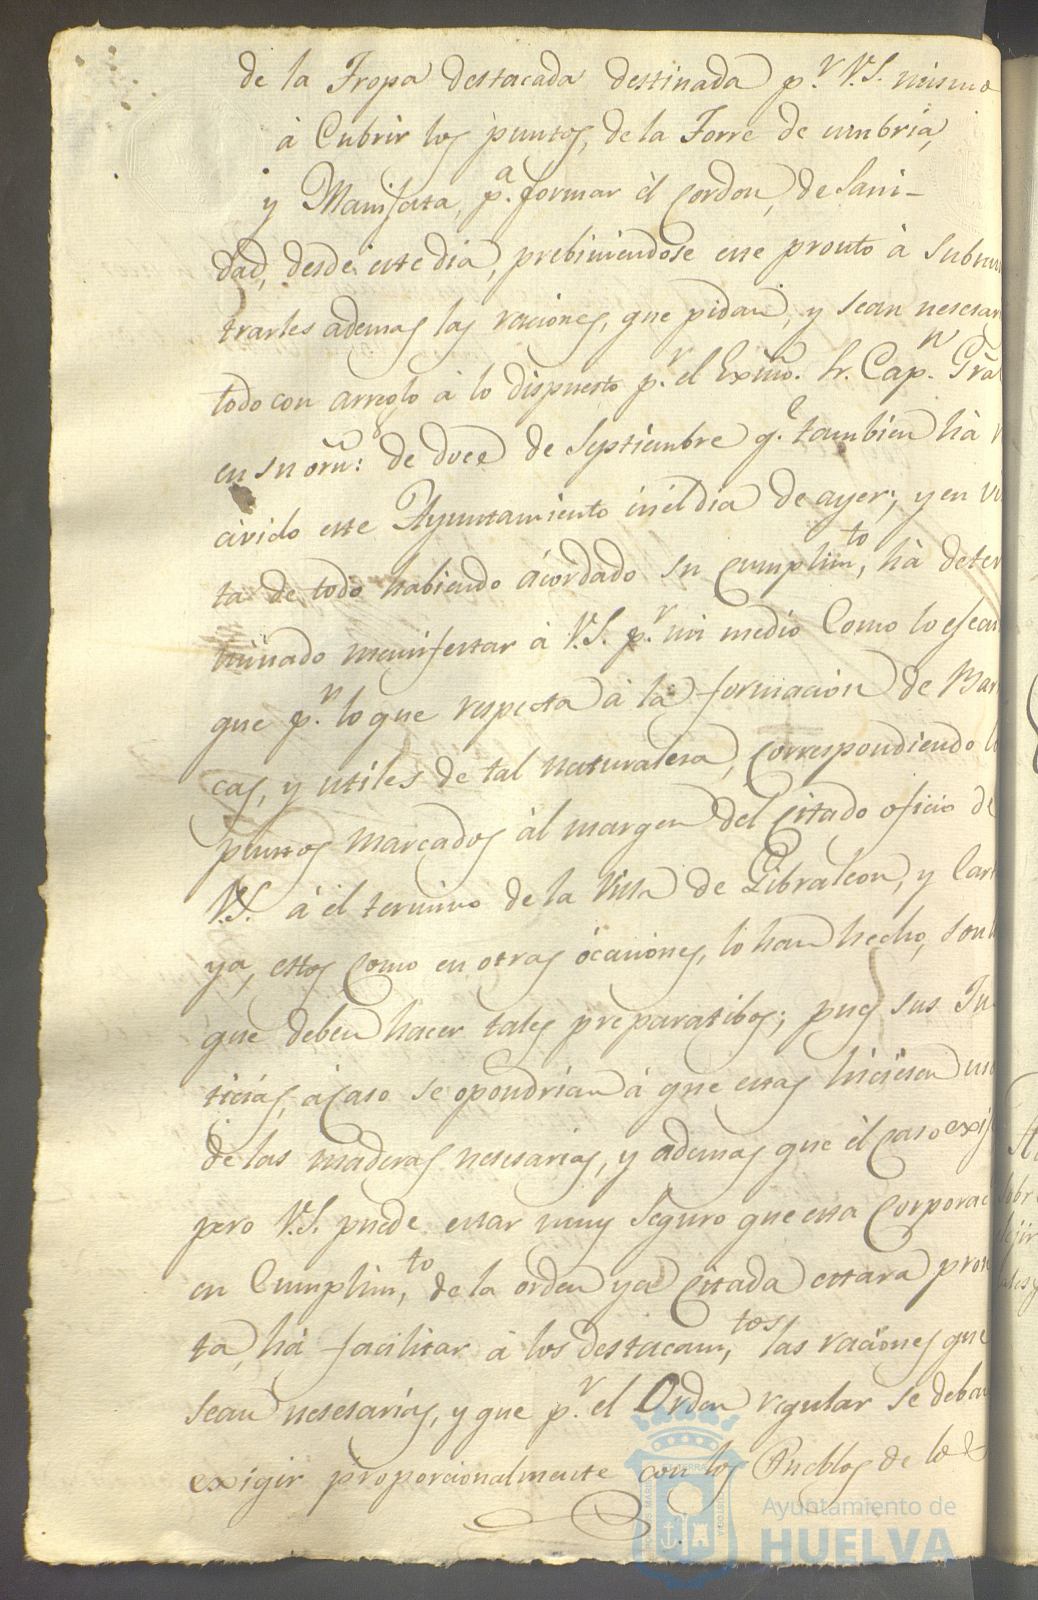 de la Tropa destacada destinada p.r V.S. mismo
à Cubrir los puntos, de la Torre de umbria,
y Manifata, p.a formar èl Cordon, de Sani-
dad, desde este dia, prebiniendose ene pronto à Submi
trarles ademas las raciones, que pidan, y sean nesesar
todo con arreglo à lo dispuesto p.r el Exmo. Sr. Cap.n Gra
en su orn: de doce de Septiembre q.e tambien hà
civido este Ayuntamiento inèl dia de ayer; y en vi
ta de todo habiendo àcordado su Cumplim.to, hà deter
minado manifestar à V.S. p.r mi medio Como lo efecau
que p.r lo que respecta à la formacion de Bar
cas, y utiles de tal naturalesa, correspondiendo lo
puntos marcados àl margen del Citado oficio de
V.S. à èl termino de la Villa de Gibraleon, y Cart
ya, estos Como en otras òcaciones, lo han hecho, son l
que deben hacer tales preparatibos; pues sus Ju
ticias, àcaso se opondrian à que estas hiciesen uso
de las maderas nesesarias, y ademas que èl Caso exi
pero V.S. puede estar muy Seguro que esta Corporac
en Cumplim.to, de la orden ya Citada estara pron
ta, hà facilitar à los destacam.tos, las raciones que
sean nesesarias, y que p.r el Orden regular se deban
exigir proporcionalmente con los Pueblos de lo
Ayuntamiento de
HUELVA